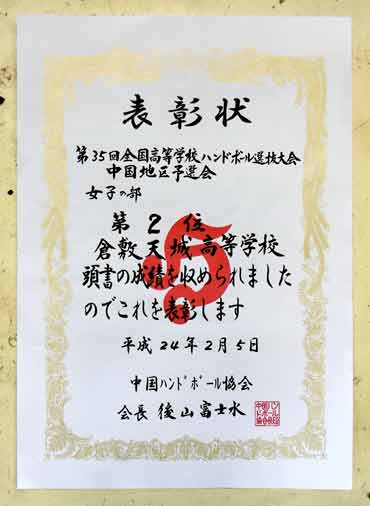 表彰状
第35回全国高等学校ハンドボール選抜大会
中国地区予選会
女子の部
第2位
倉敷天城高等学校
頭書の成績を収められました
のでこれを表彰します
平成24年2月5日
中国ハンドボール協会
会長 後山富士水